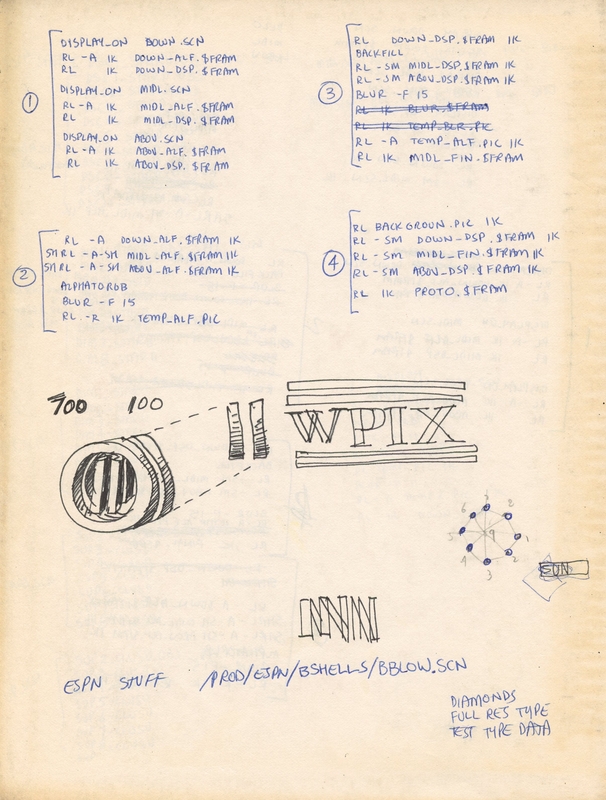 ①
DISPLAY_ON DOWN.SCN
RL -A 1K DOWN_ALF.$FRAM
RL 1K DOWN_DSP.$FRAM
DISPLAY_ON MIDL.SCN
RL -A 1K MIDL_ALF.$FRAM
RL 1K MIDL_DSP.$FRAM
DISPLAY_ON ABOV.SCN
RL -A 1K ABOV_ALF.$FRAM
RL 1K ABOV_DSP.$FRAM
②
RL -A DOWN_ALF.$FRAM 1K
SM RL -A-SM MIDL_ALF.$FRAM 1K
SM RL -A-SM ABOV_ALF.$FRAM 1K
ALPHATORGB
BLUR -F 15
RL -R 1K TEMP_ALF.PIC
③
RL DOWN_DSP.$FRAM 1K
BACKFILL
RL -SM MIDL_DSP.$FRAM 1K
RL -SM ABOV_DSP.$FRAM 1K
BLUR -F 15
RL 1K BLUR.$FRAM
RL 1K TEMP_BLR.PIC
RL -A TEMP_ALF.PIC 1K
RL 1K MIDL_FIN.$FRAM
④
RL BACKGROUN.PIC 1K
RL -SM DOWN_DSP.$FRAM 1K
RL -SM MIDL_FIN.$FRAM 1K
RL -SM ABOV_DSP.$FRAM 1K
RL 1K PROTO.$FRAM
700 100
WPIX
7
6 8
5 9 1
4 2
3
SUN
ESPN STUFF /PROD/ESPN/BSHELLS/BBLOW.SCN
DIAMONDS
FULL RES TYPE
TEST TYPE DATA